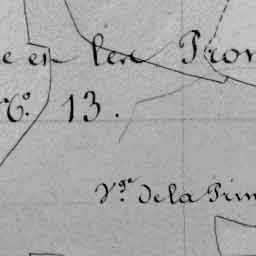 e et les Pro
N.º 13.
V.ge de la Prim